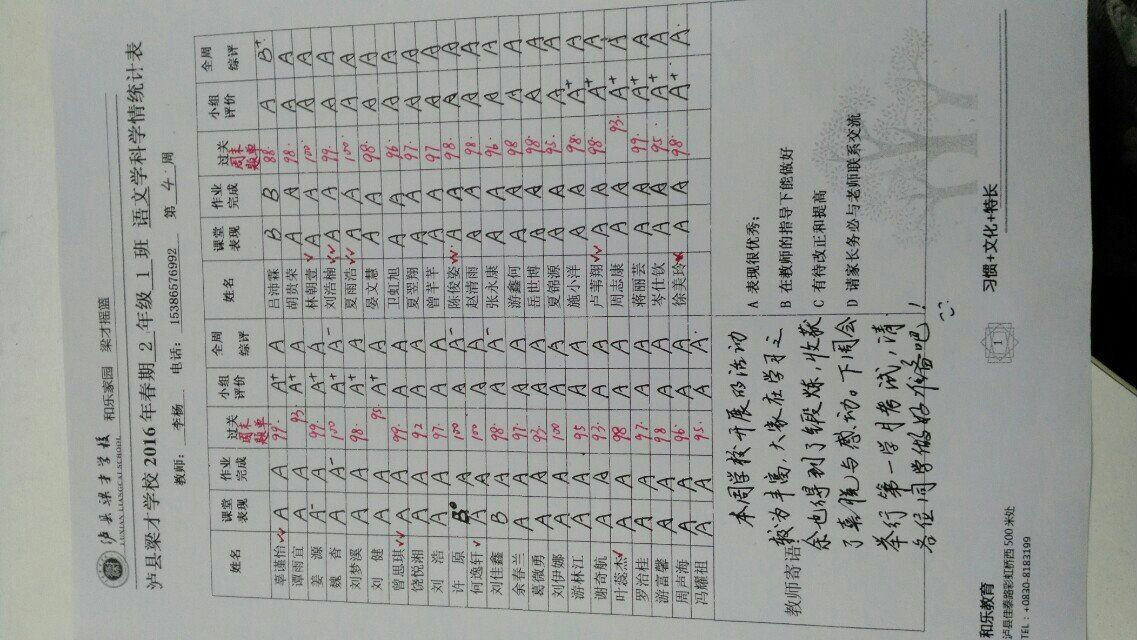 泸县梁才学校 和乐家园 梁才摇篮
LUXIAN LIANGCAI SCHOOL
泸县梁才学校 2016 年春期 2 年级 1 班 语文学科学情统计表
教师: 李杨 电话: 15386576992 第 4 周
姓名 课堂表现 作业完成 过关 周末题单 小组评价 全周综评 姓名 课堂表现 作业完成 过关 周末题单 小组评价 全周综评
辜谨怡 A A 99. A+ A 吕沛霖 B B 88. A B+
谭雨宜 A A 93 A+ A 胡贵荣 A A 98. A A
姜源 A- A 99. A+ A 林朝壹 A A 100. A A
魏杳 A A- 100 A+ A- 刘浩楠 A A 99. A A
刘梦溪 A A 98. A+ A 夏雨浩 A A 100. A A
刘健 A A 95. A+ A 晏文慧 A A 98. A A
曾思琪 A A 99. A A 卫虹旭 A A 96. A A
饶悦湘 A A 92 A A 夏翌翔 A A 97. A A
刘浩 A A 97. A A 曾芊芊 A A 97 A A
许原 B A 100 A A- 陈俊姿 A A 98. A A
何逸轩 A A 100 A A 赵清雨 A A 97. A A
刘佳鑫 B A 98. A A- 张永康 A A 96 A A
余春兰 A A 97. A A 游鑫何 A A 98 A A
葛微勇 A A 93. A A 岳世博 A A 98. A A
刘伊娜 A A 100 A A 夏锦源 A A 95. A A
游林江 A A 95 A A 施小洋 A A 98. A+ A
谢奇航 A A 93. A A 卢苇翔 A A 98. A+ A
叶蕊杰 A A 98 A A 周志康 A A 93. A+ A
罗治桂 A A 97. A A 蒋丽芸 A A 99. A+ A
游富馨 A A 98 A A 岑仕钦 A A 95. A+ A
周声海 A A 96. A A 徐美玲 A A 98. A+ A
冯耀祖 A A 95. A A
教师寄语
本周学校开展的活动
较为丰富,大家在学习之
余也得到了锻炼,收获
了喜悦与感动。下周会
举行第一学月考试,请
各位同学做好准备吧!
A 表现很优秀;
B 在教师的指导下能做好
C 有待改正和提高
D 请家长务必与老师联系交流
和乐教育
泸县佳泰路彩虹桥西 500 米处
TEL:+0830-8183199
1
习惯+文化+特长